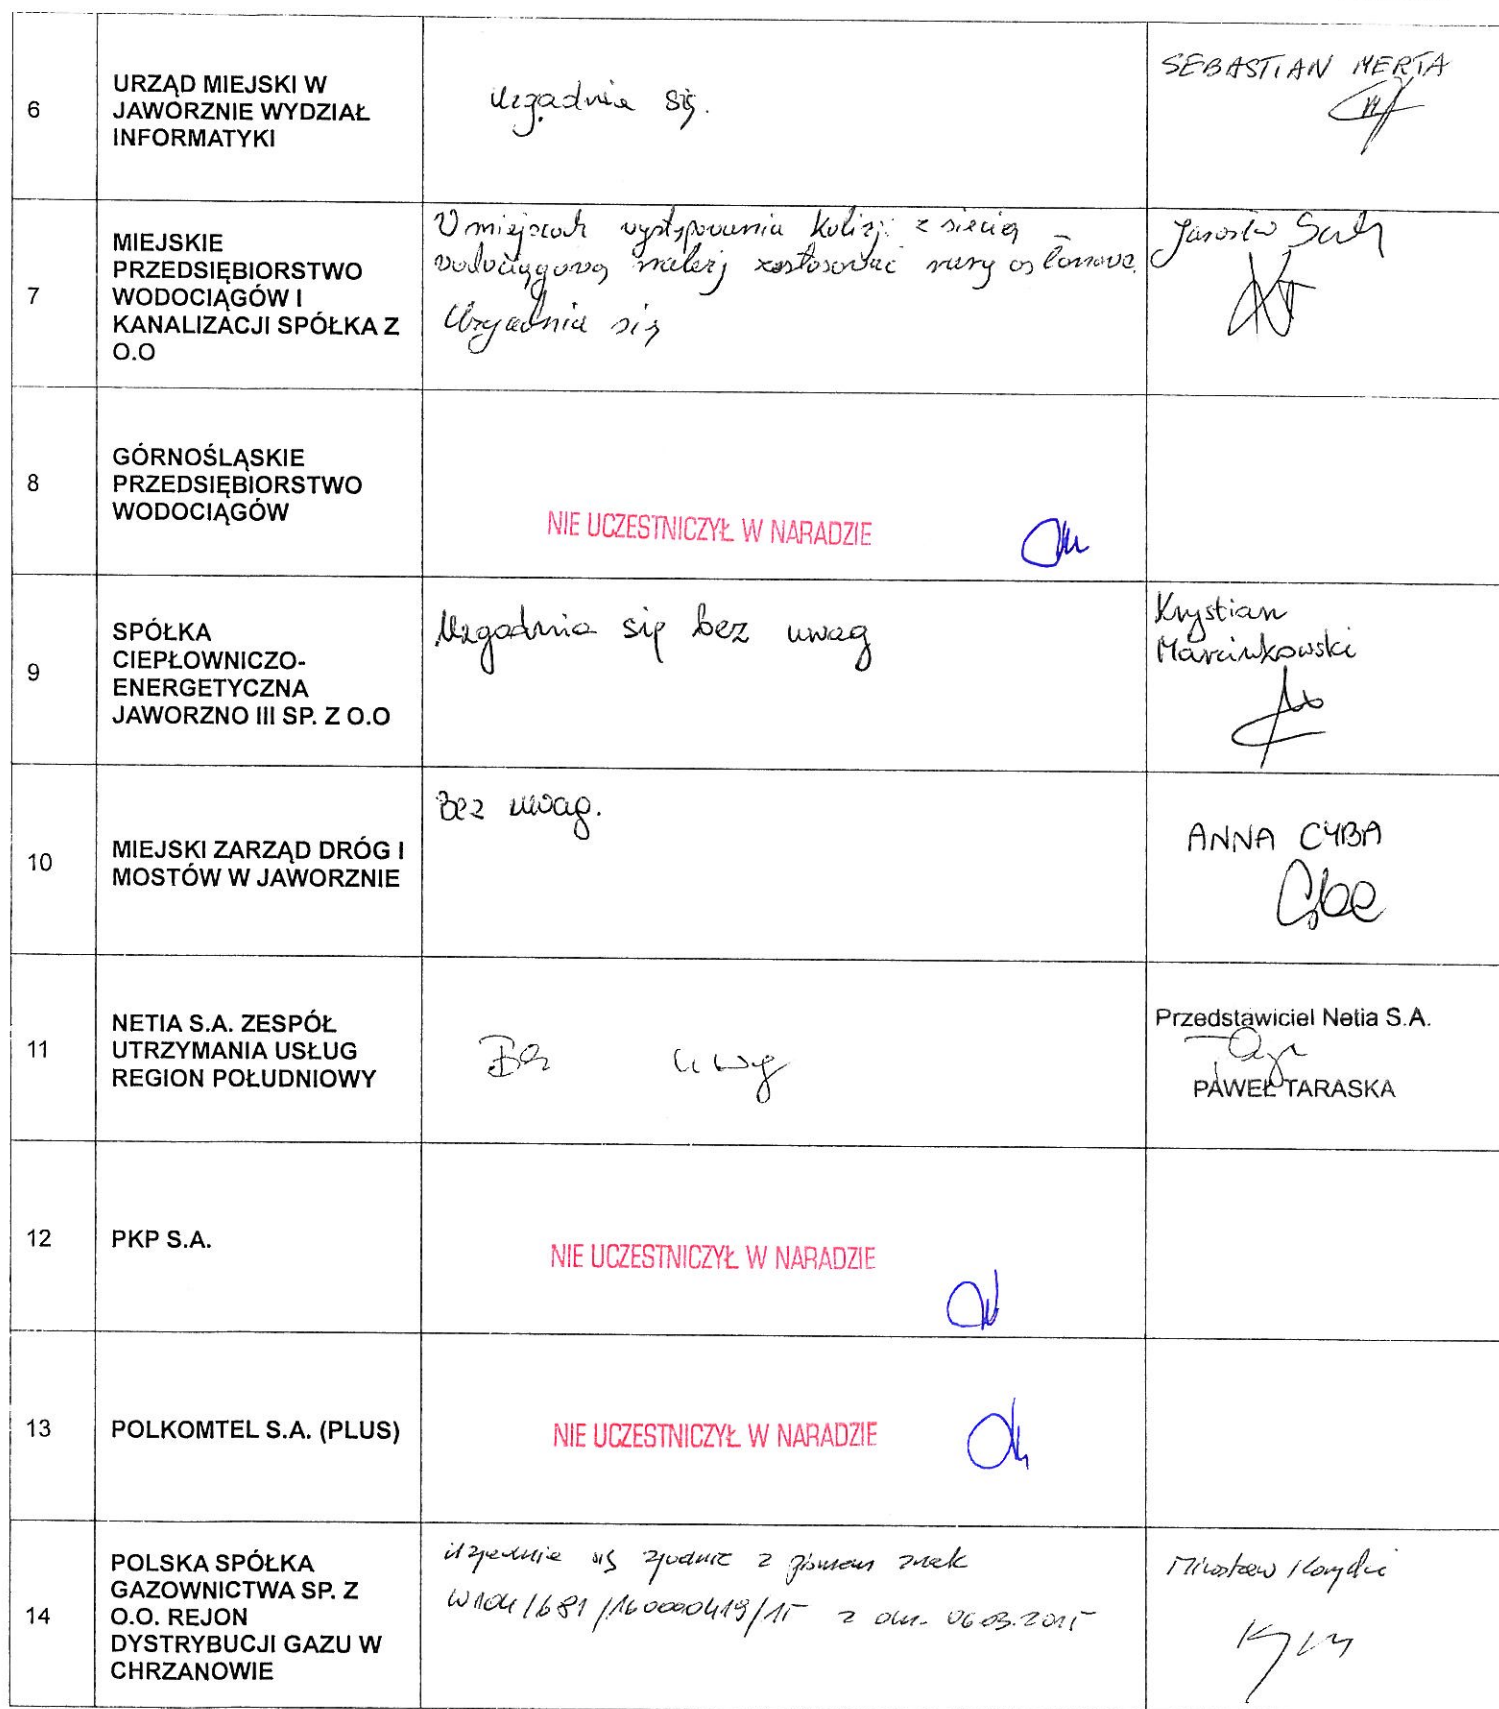 6
URZĄD MIEJSKI W
JAWORZNIE WYDZIAŁ
INFORMATYKI
Uzgadnia się.
SEBASTIAN MERTA
7
MIEJSKIE
PRZEDSIĘBIORSTWO
WODOCIĄGÓW I
KANALIZACJI SPÓŁKA Z
O.O
W miejscach występowania kolizji z siecią
wodociągową należy zastosować rury osłonowe.
Uzgadnia się
Jarosław
8
GÓRNOŚLĄSKIE
PRZEDSIĘBIORSTWO
WODOCIĄGÓW
NIE UCZESTNICZYŁ W NARADZIE
9
SPÓŁKA
CIEPŁOWNICZO-
ENERGETYCZNA
JAWORZNO III SP. Z O.O
Uzgadnia się bez uwag
Krystian
Marcinkowski
10
MIEJSKI ZARZĄD DRÓG I
MOSTÓW W JAWORZNIE
Bez uwag.
ANNA CYBA
11
NETIA S.A. ZESPÓŁ
UTRZYMANIA USŁUG
REGION POŁUDNIOWY
Bez uwag
Przedstawiciel Netia S.A.
PAWEŁ TARASKA
12
PKP S.A.
NIE UCZESTNICZYŁ W NARADZIE
13
POLKOMTEL S.A. (PLUS)
NIE UCZESTNICZYŁ W NARADZIE
14
POLSKA SPÓŁKA
GAZOWNICTWA SP. Z
O.O. REJON
DYSTRYBUCJI GAZU W
CHRZANOWIE
uzgadnia się zgodnie z pismem znak
z dn. 06.03.2015
Mirosław